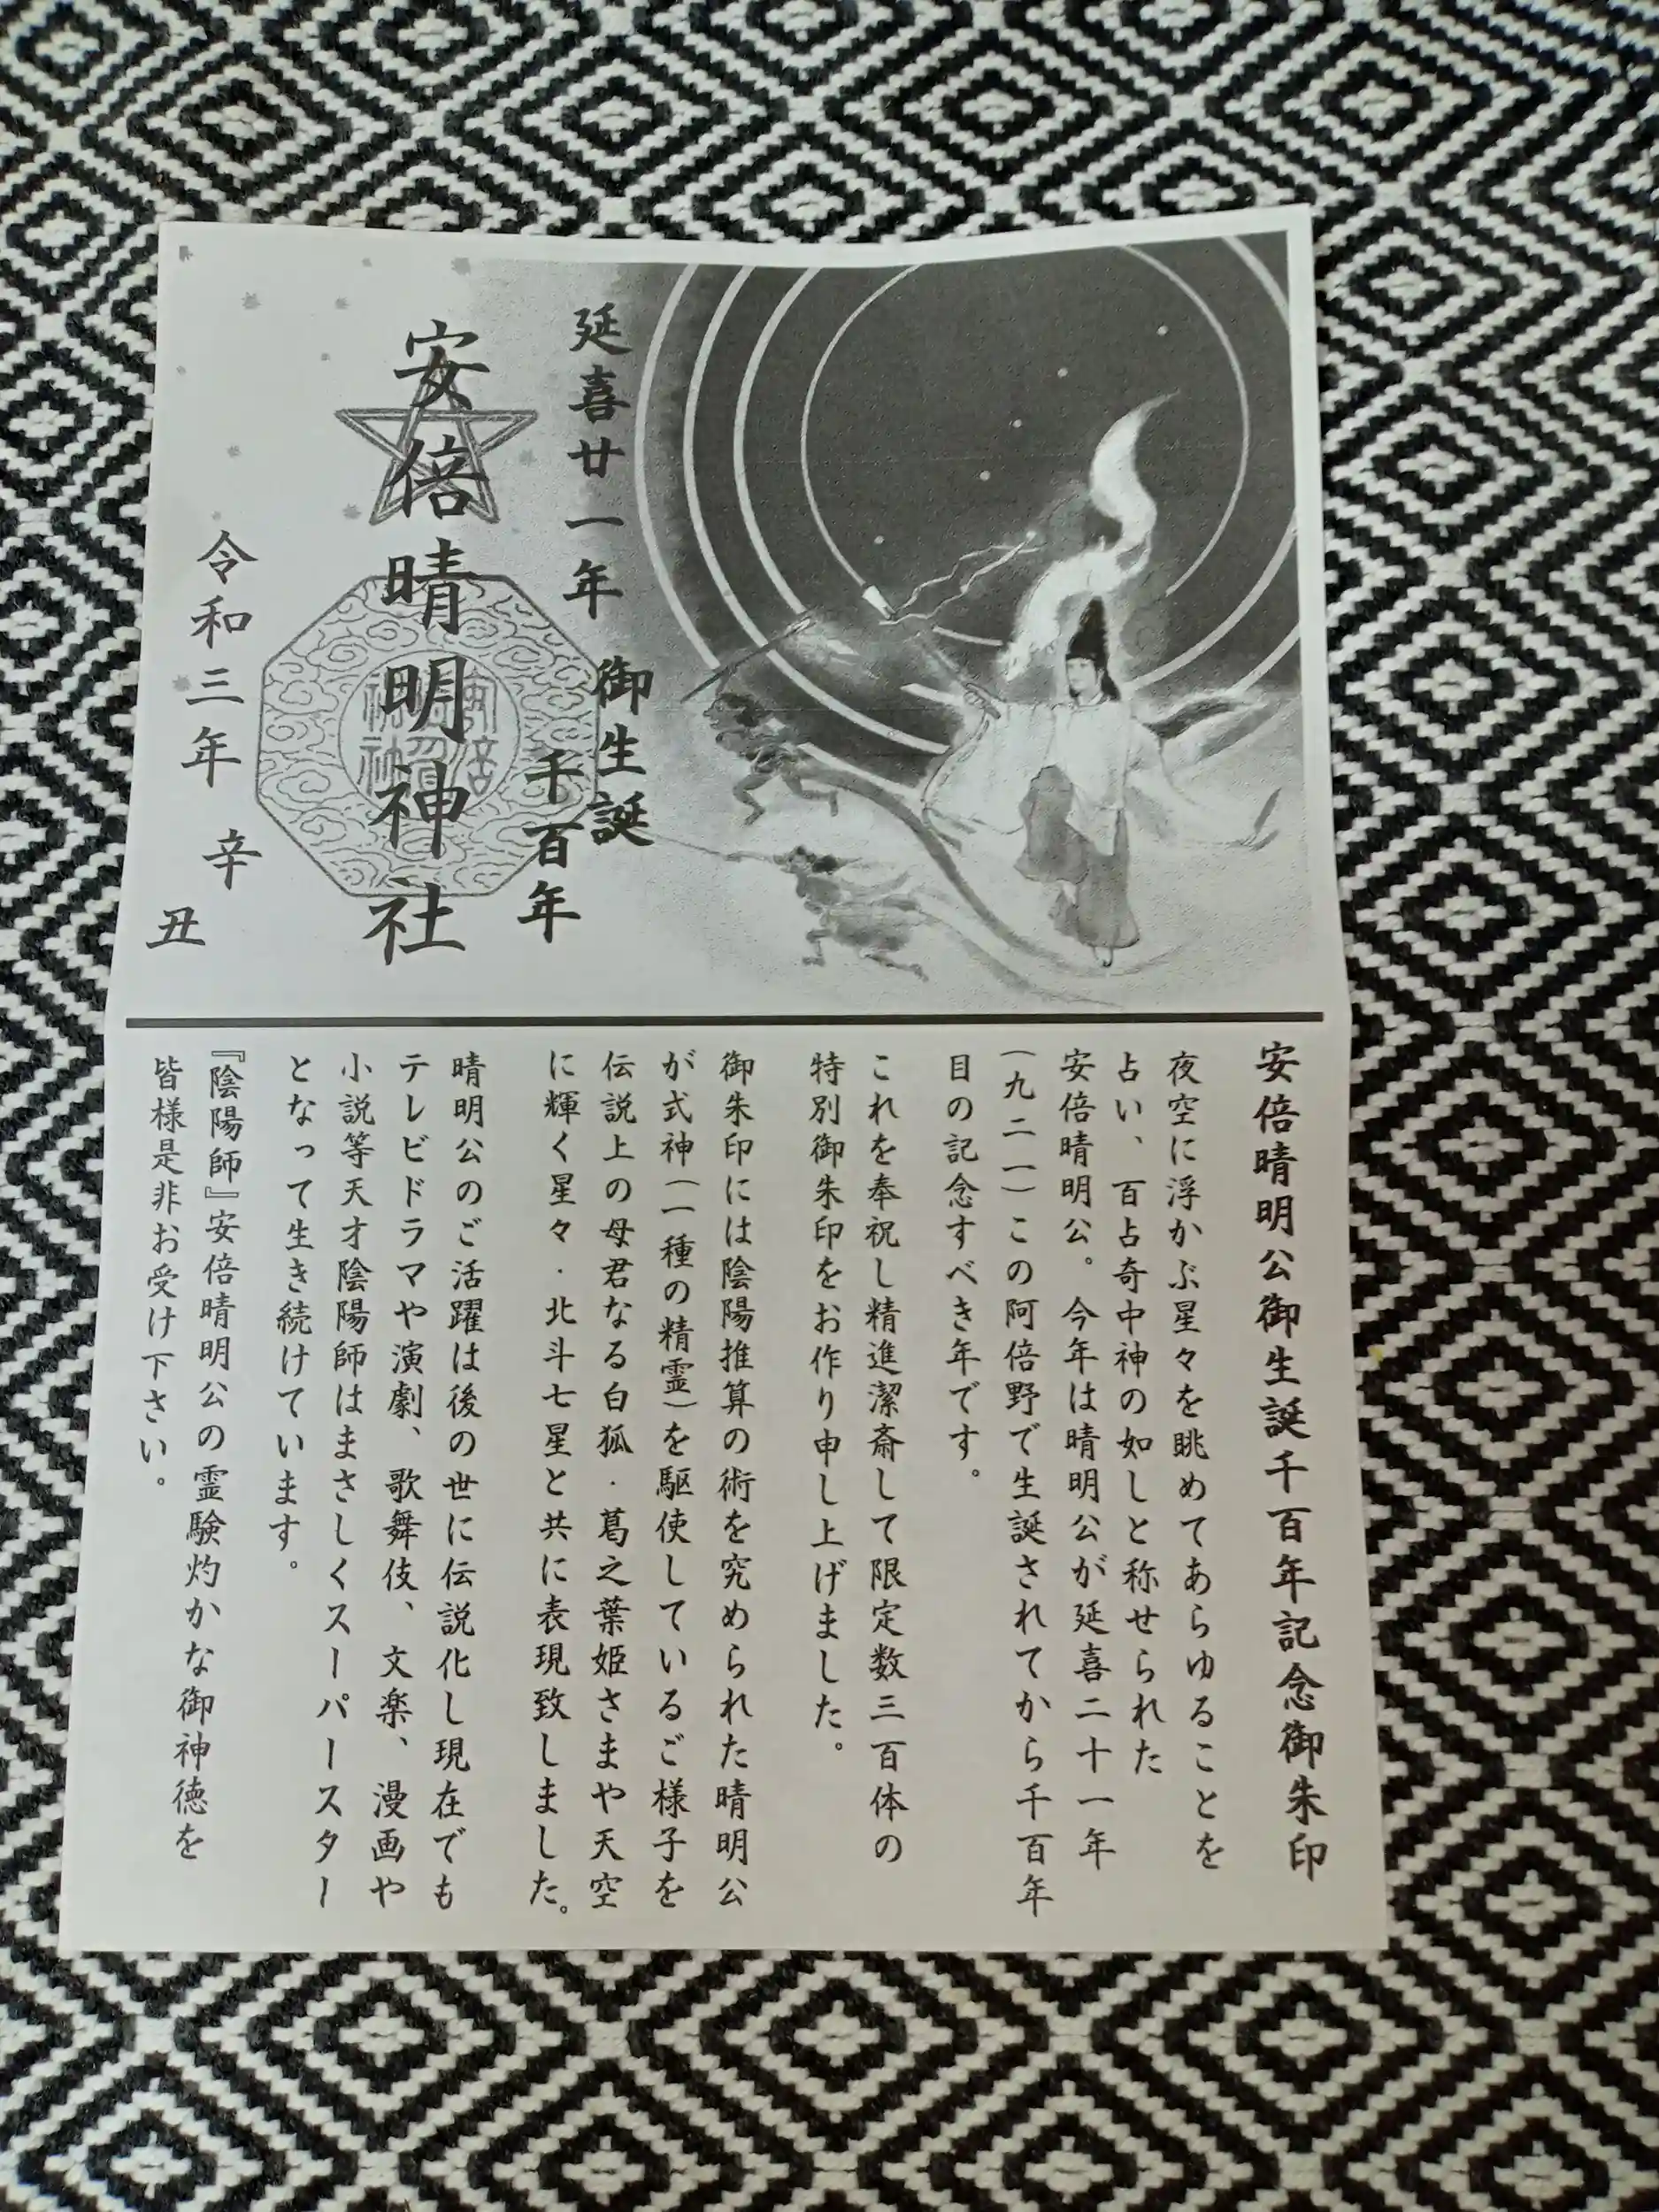 延喜廿一年
御生誕
千百年
安倍晴明神社
令和三年
辛
丑
安倍晴明公御生誕千百年記念御朱印
夜空に浮かぶ星々を眺めてあらゆることを
占い、百占奇中神の如しと称せられた
安倍晴明公。今年は晴明公が延喜二十一年
(九二一)この阿倍野で生誕されてから千百年
目の記念すべき年です。
これを奉祝し精進潔斎して限定数三百体の
特別御朱印をお作り申し上げました。
御朱印には陰陽推算の術を究められた晴明公
が式神(一種の精霊)を駆使しているご様子を
伝説上の母君なる白狐・葛之葉姫さまや天空
に輝く星々・北斗七星と共に表現致しました。
晴明公のご活躍は後の世に伝説化し現在でも
テレビドラマや演劇、歌舞伎、文楽、漫画や
小説等天才陰陽師はまさしくスーパースター
となって生き続けています。
『陰陽師』安倍晴明公の霊験灼かな御神徳を
皆様是非お受け下さい。